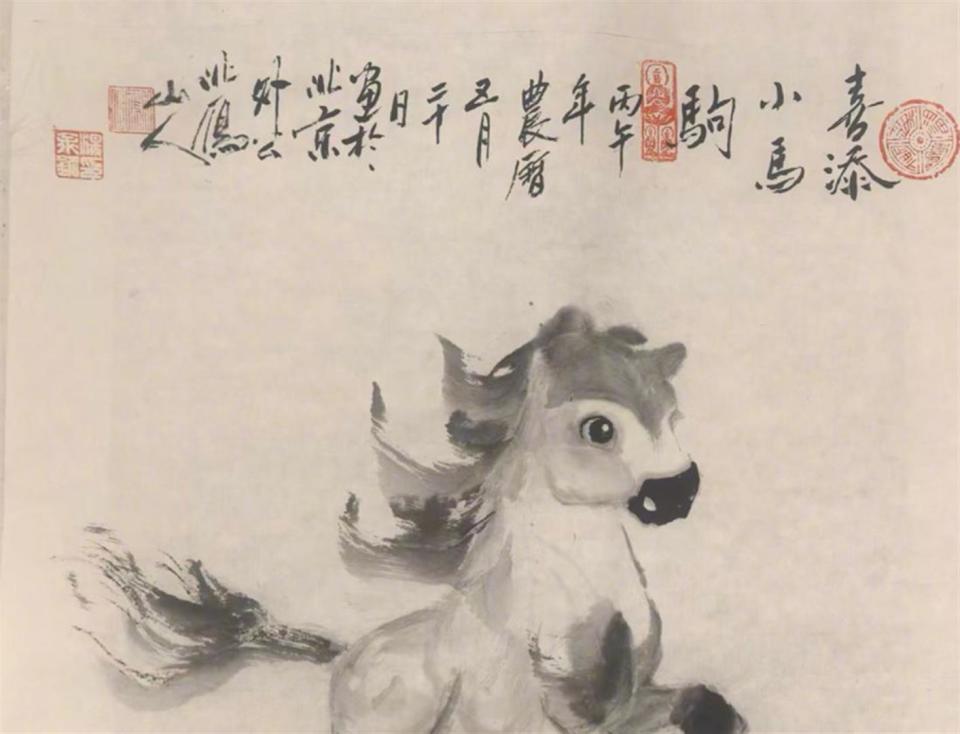 喜添
小馬
駒
丙午
年
農曆
五月
二十
日
畫於
北京
外公
北
山人